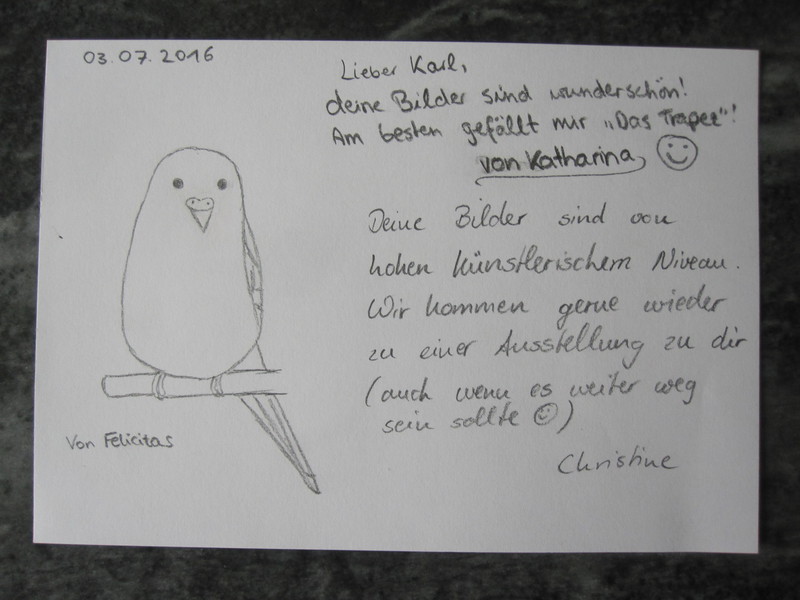 03.07.2016
Lieber Karl,
deine Bilder sind wunderschön!
Am besten gefällt mir „Das Trapez"!
von Katharina
Deine Bilder sind von
hohen künstlerischem Niveau.
Wir kommen gerne wieder
zu einer Ausstellung zu dir
(auch wenn es weiter weg
sein sollte ☺)
Christine
Von Felicitas